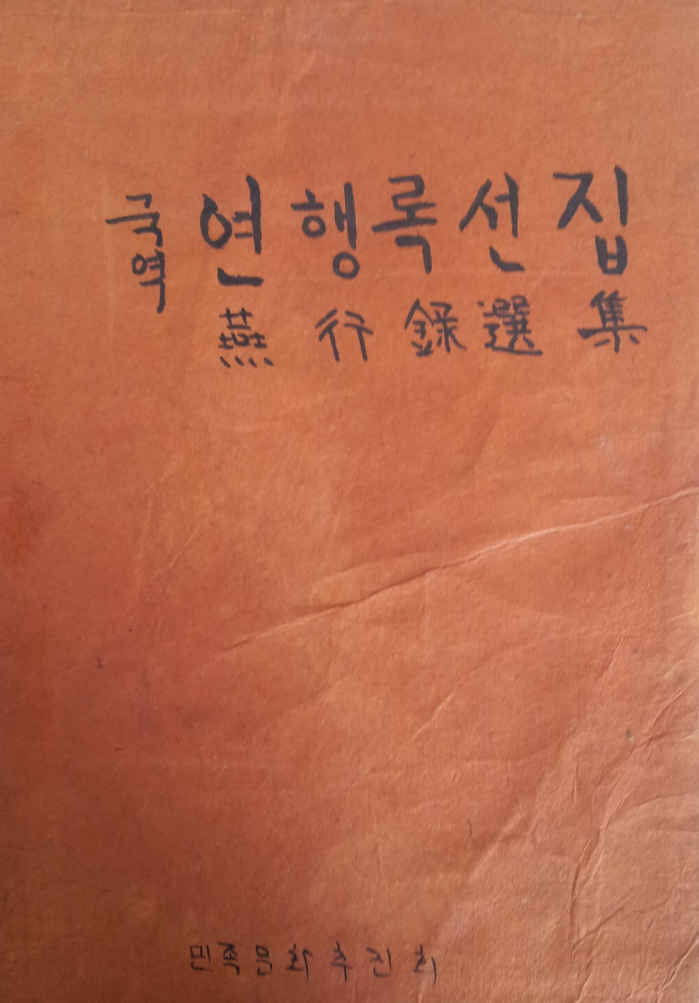 국역 연행록선집
燕行錄選集
민족문화추진회